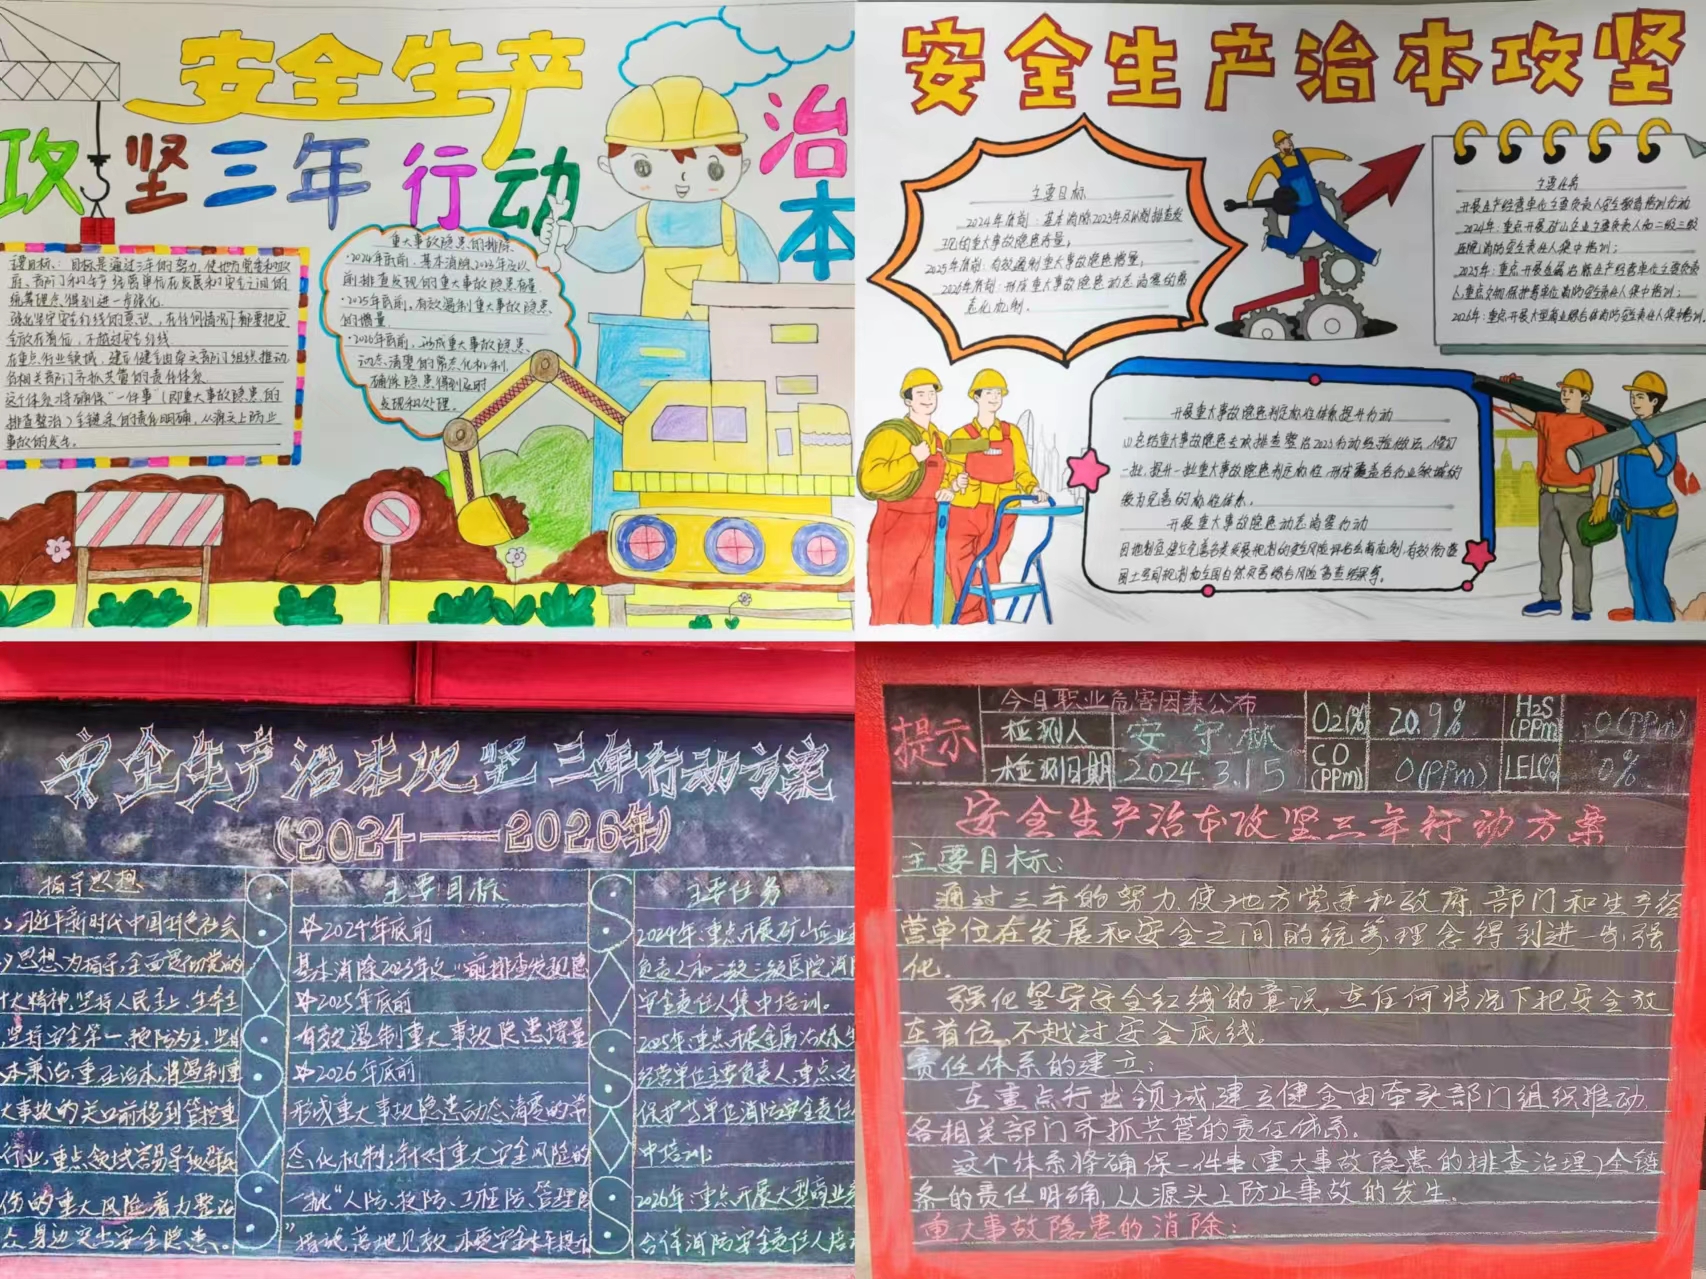 安全生产
治本
攻坚三年行动
主要目标：目标是通过三年的努力，使地方党委和政
府、部门和生产经营单位在发展和安全之间的
统筹理念得到进一步强化
强化坚守安全红线的意识，在任何情况下都要把安
全放在首位，不越过安全红线
在重点行业领域，建立健全由牵头部门组织推动
各相关部门齐抓共管的责任体系
这个体系将确保"一件事"（即重大事故隐患的
排查整治）全链条的责任明确，从源头上防止
事故的发生。
重大事故隐患的排除
·2024年底前，基本消除2023年及以
前排查发现的重大事故隐患存量
·2025年底前，有效遏制重大事故隐患
的增量
·2026年底前，形成重大事故隐患
动态清零的常态化机制，
确保隐患得到及时
发现和处理。
安全生产治本攻坚
主要目标
2024年底前：基本消除2023年及以前排查发
现的重大事故隐患存量；
2025年底前：有效遏制重大事故隐患增量；
2026年底前：形成重大事故隐患动态清零的常
态化机制。
主要任务
开展生产经营单位主要负责人安全教育培训行动
2024年：重点开展矿山企业主要负责人和二级三级
医院消防安全责任人集中培训；
2025年：重点开展金属冶炼生产经营单位主要负责
人、重点文物保护等单位消防安全责任人集中培训；
2026年：重点开展大型商业综合体消防安全责任人集中培训。
开展重大事故隐患判定标准体系提升行动
总结重大事故隐患专项排查整治2023行动经验做法，修订
一批、提升一批重大事故隐患判定标准，形成覆盖各行业领域的
较为完善的标准体系。
开展重大事故隐患动态清零行动
安全生产治本攻坚三年行动方案
（2024——2026年）
指导思想
习近平新时代中国特色社会
思想为指导，全面贯彻党的
十大精神，坚持人民至上、生命至
坚持安全第一、预防为主，坚持
本兼治、重在治本，将遏制重
大事故的关口前移到管控重
行业、重点领域容易导致群死
伤的重大风险，着力整治
众身边突出安全隐患。
主要目标
2024年底前
基本消除2023年及以前排查发现隐
2025年底前
有效遏制重大事故隐患增量
2026年底前
形成重大事故隐患动态清零的常
态化机制；针对重大安全风险的
一批"人防、技防、工程防、管理防
"措施落地见效，本质安全水平提升
主要任务
2024年：重点开展矿山企业
负责人和二级三级医院消防
安全责任人集中培训。
2025年：重点开展金属冶炼生
经营单位主要负责人、重点文
保护等单位消防安全责任
中培训；
2026年：重点开展大型商业
合体消防安全责任人培训
提示
今日职业危害因素公布
检测人 安守林
检测日期 2024.3.15
O2(%) 20.9% H2S(PPm) 0(PPm)
CO(PPm) 0(PPm) LEL(%) 0%
安全生产治本攻坚三年行动方案
主要目标：
通过三年的努力，使地方党委和政府、部门和生产经
营单位在发展和安全之间的统筹理念得到进一步强
化。
强化坚守安全红线的意识，在任何情况下把安全放
在首位，不越过安全底线。
责任体系的建立：
在重点行业领域建立健全由牵头部门组织推动，
各相关部门齐抓共管的责任体系。
这个体系将确保一件事（重大事故隐患的排查治理）全链
条的责任明确，从源头上防止事故的发生。
重大事故隐患的消除：